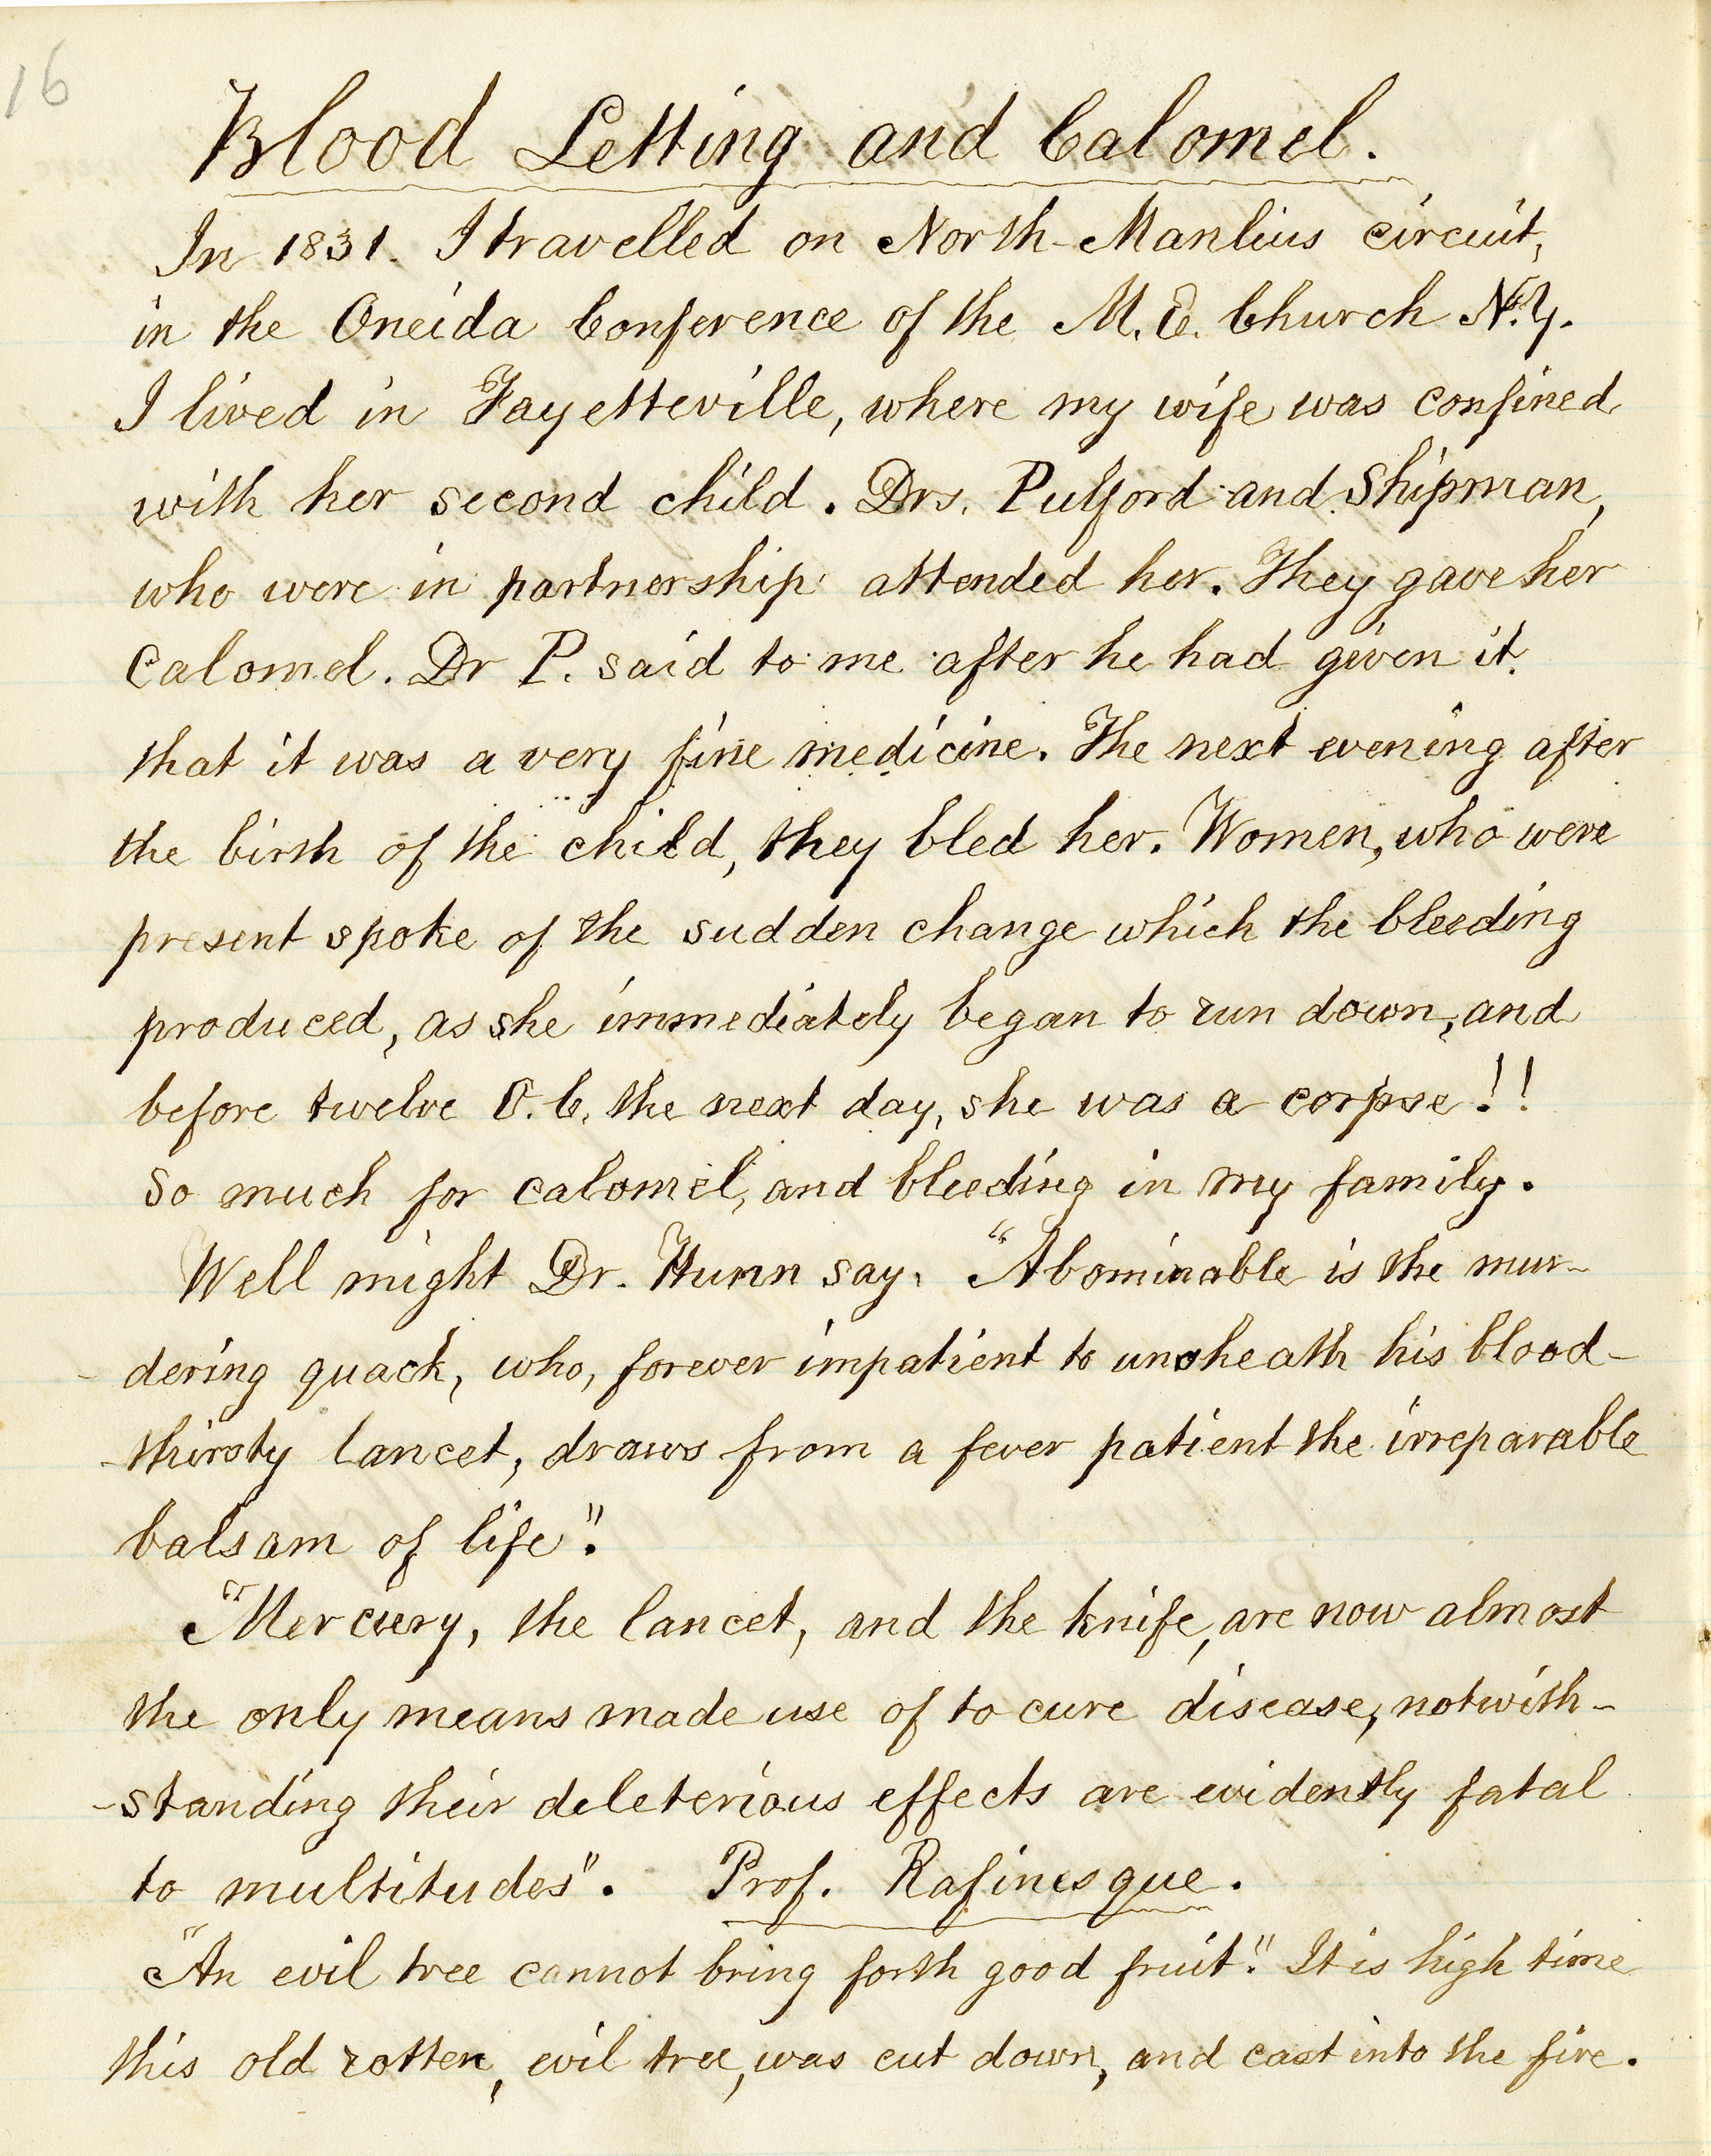 16
Blood Letting and Calomel.
In 1831. I travelled on North Manlius circuit,
in the Oneida Conference of the M. E. Church N.Y.
I lived in Fayetteville, where my wife was confined
with her second child. Drs. Pulford and Shipman,
who were in partnership attended her. They gave her
Calomel. Dr P. said to me after he had given it.
that it was a very fine medicine. The next evening after
the birth of the child, they bled her. Women, who were
present spoke of the sudden change which the bleeding
produced, as she immediately began to run down, and
before twelve O.C. the next day, she was a corpse!!
So much for calomel, and bleeding in my family.
Well might Dr. Hunn say, "Abominable is the mur-
-dering quack, who, forever impatient to unsheath his blood-
-thirsty lancet, draws from a fever patient the irreparable
balsam of life".
"Mercury, the lancet, and the knife, are now almost
the only means made use of to cure disease, notwith-
-standing their deleterious effects are evidently fatal
to multitudes". Prof. Rafinesque.
"An evil tree cannot bring forth good fruit". It is high time
this old rotten, evil tree, was cut down, and cast into the fire.